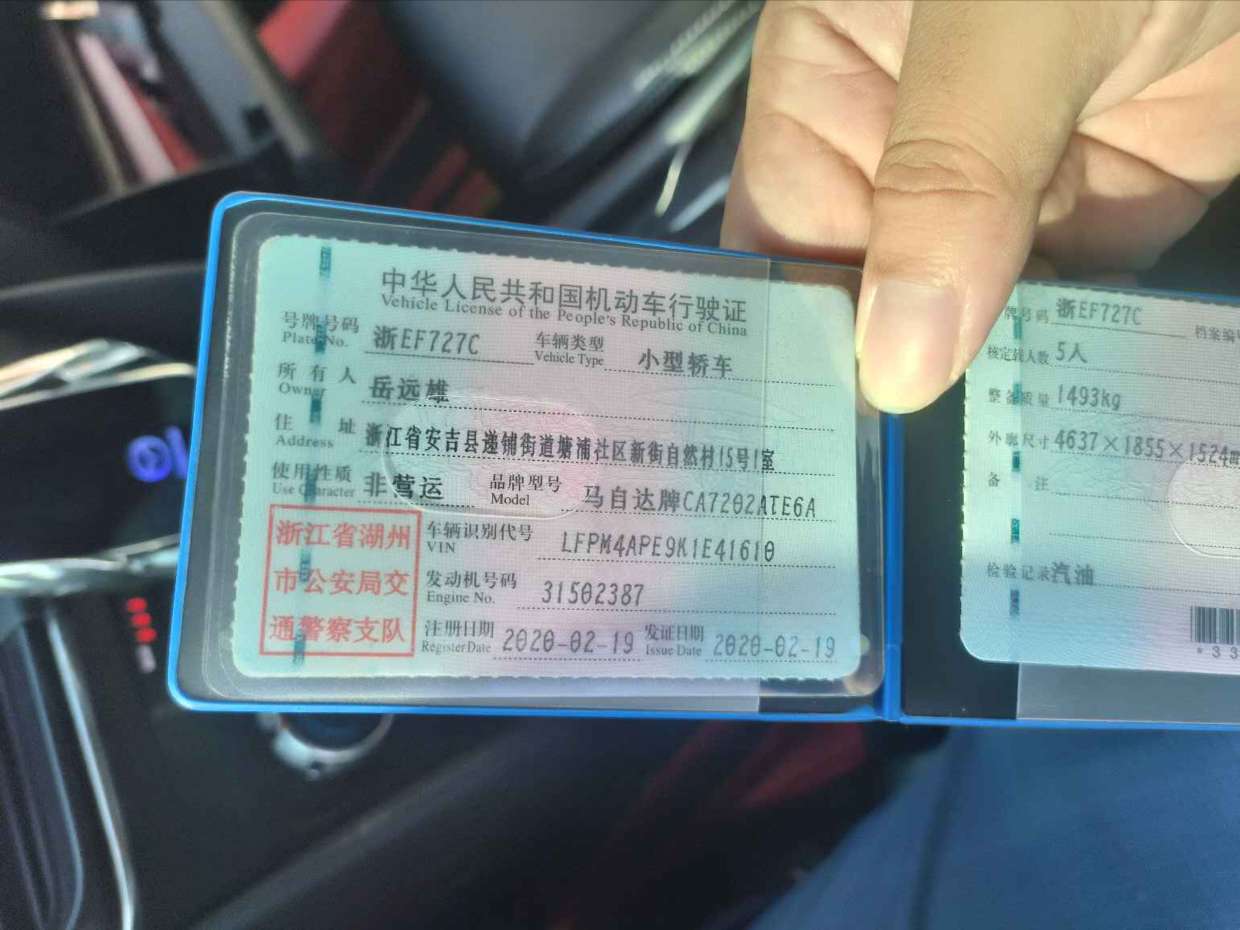 中华人民共和国机动车行驶证
Vehicle License of the People's Republic of China
号牌号码 浙EF727C 车辆类型 小型轿车
Plate No. Vehicle Type
所有人 岳远雄
Owner
住址 浙江省安吉县递铺街道塘浦社区新街自然村15号1室
Address
使用性质 非营运 品牌型号 马自达牌CA7202ATE6A
Use Character Model
浙江省湖州
市公安局交
通警察支队
车辆识别代号 LFPM4APE9K1E41610
VIN
发动机号码 31502387
Engine No.
注册日期 2020-02-19 发证日期 2020-02-19
Register Date Issue Date
牌号码 浙EF727C 档案编号
核定载人数 5人
整备质量 1493kg
外廓尺寸 4637×1855×1524
备注
检验记录 汽油
*33